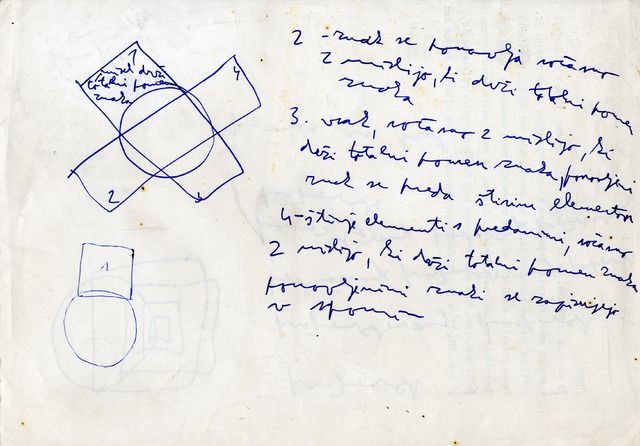 1
misel drži
totalni pomen
znaka
4
2
3
1
2 - znak se ponavlja sočasno
z mislijo, ki drži totalni pomen
znaka
3. vsak, sočasno z mislijo, ki
drži totalni pomen znaka, ponovljeni
znak se preda štirim elementom
4 - štirje elementi s predanimi, sočasno
z mislijo, ki drži totalni pomen znaka
ponovljenimi znaki se zapisujejo
v spomin